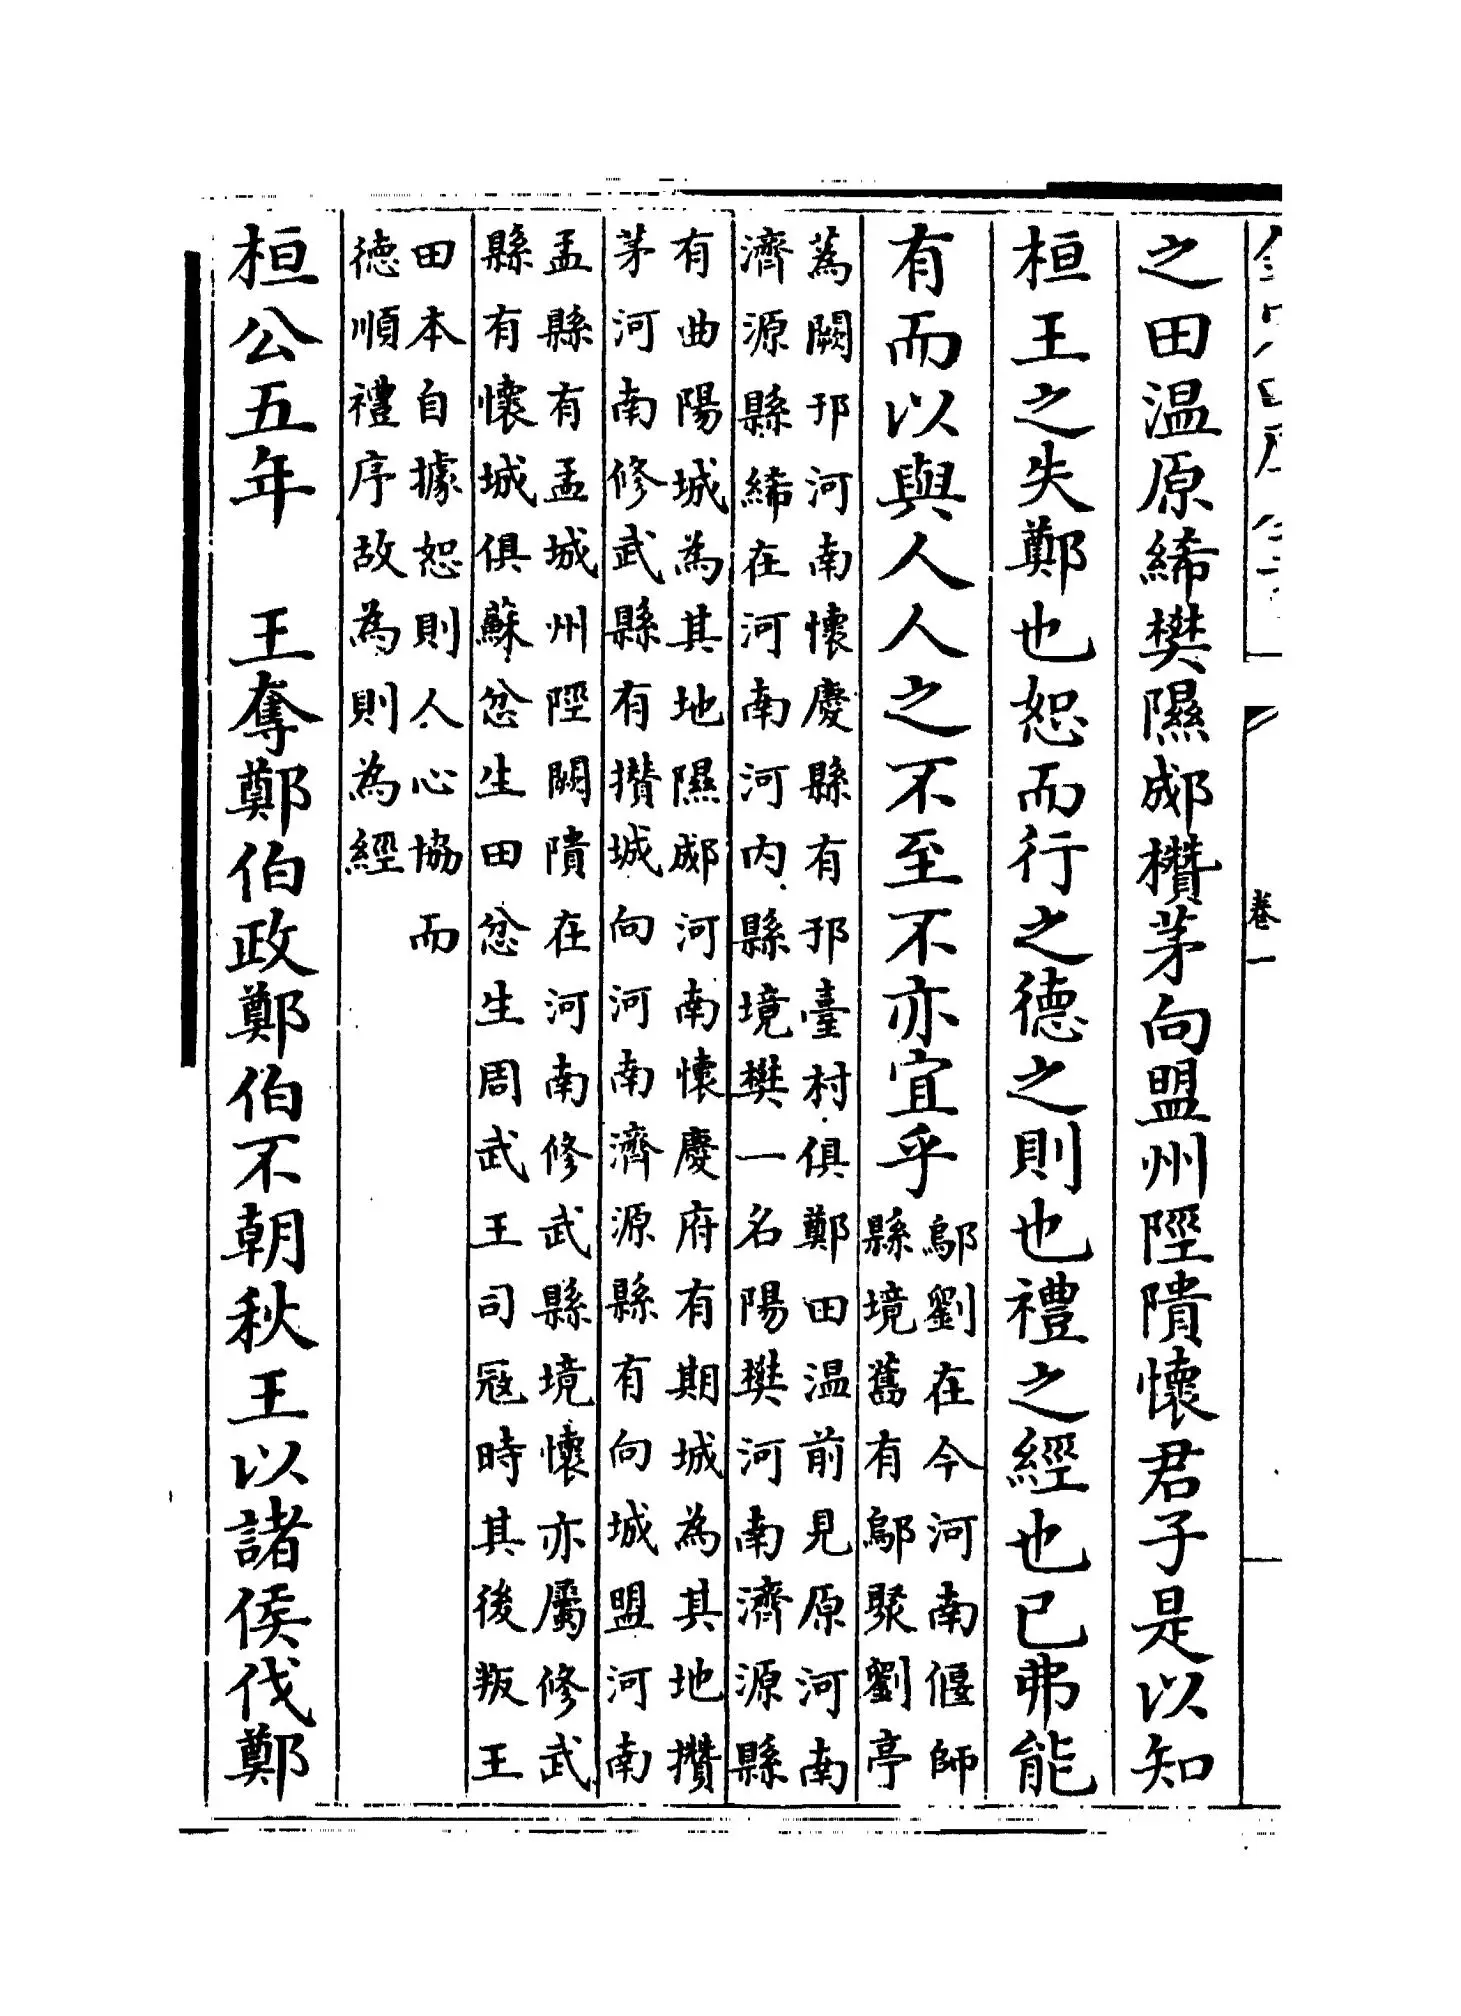 之田温原絺樊隰郕欑茅向盟州陘隤懷君子是以知
桓王之失鄭也恕而行之德之則也禮之經也已弗能
有而以與人人之不至不亦宜乎
鄔劉在今河南偃師
縣境舊有鄔聚劉亭
蒍闕邘河南懷慶縣有邘臺村俱鄭田温前見原河南
濟源縣絺在河南河内縣境樊一名陽樊河南濟源縣
有曲陽城為其地隰郕河南懷慶府有期城為其地攢
茅河南修武縣有攢城向河南濟源縣有向城盟河南
孟縣有孟城州陘闕隤在河南修武縣境懷亦屬修武
縣有懷城俱蘇忿生田忿生周武王司冦時其後叛王
田本自據恕則人心協而
徳順禮序故為則為經
桓公五年 王奪鄭伯政鄭伯不朝秋王以諸侯伐鄭
卷一